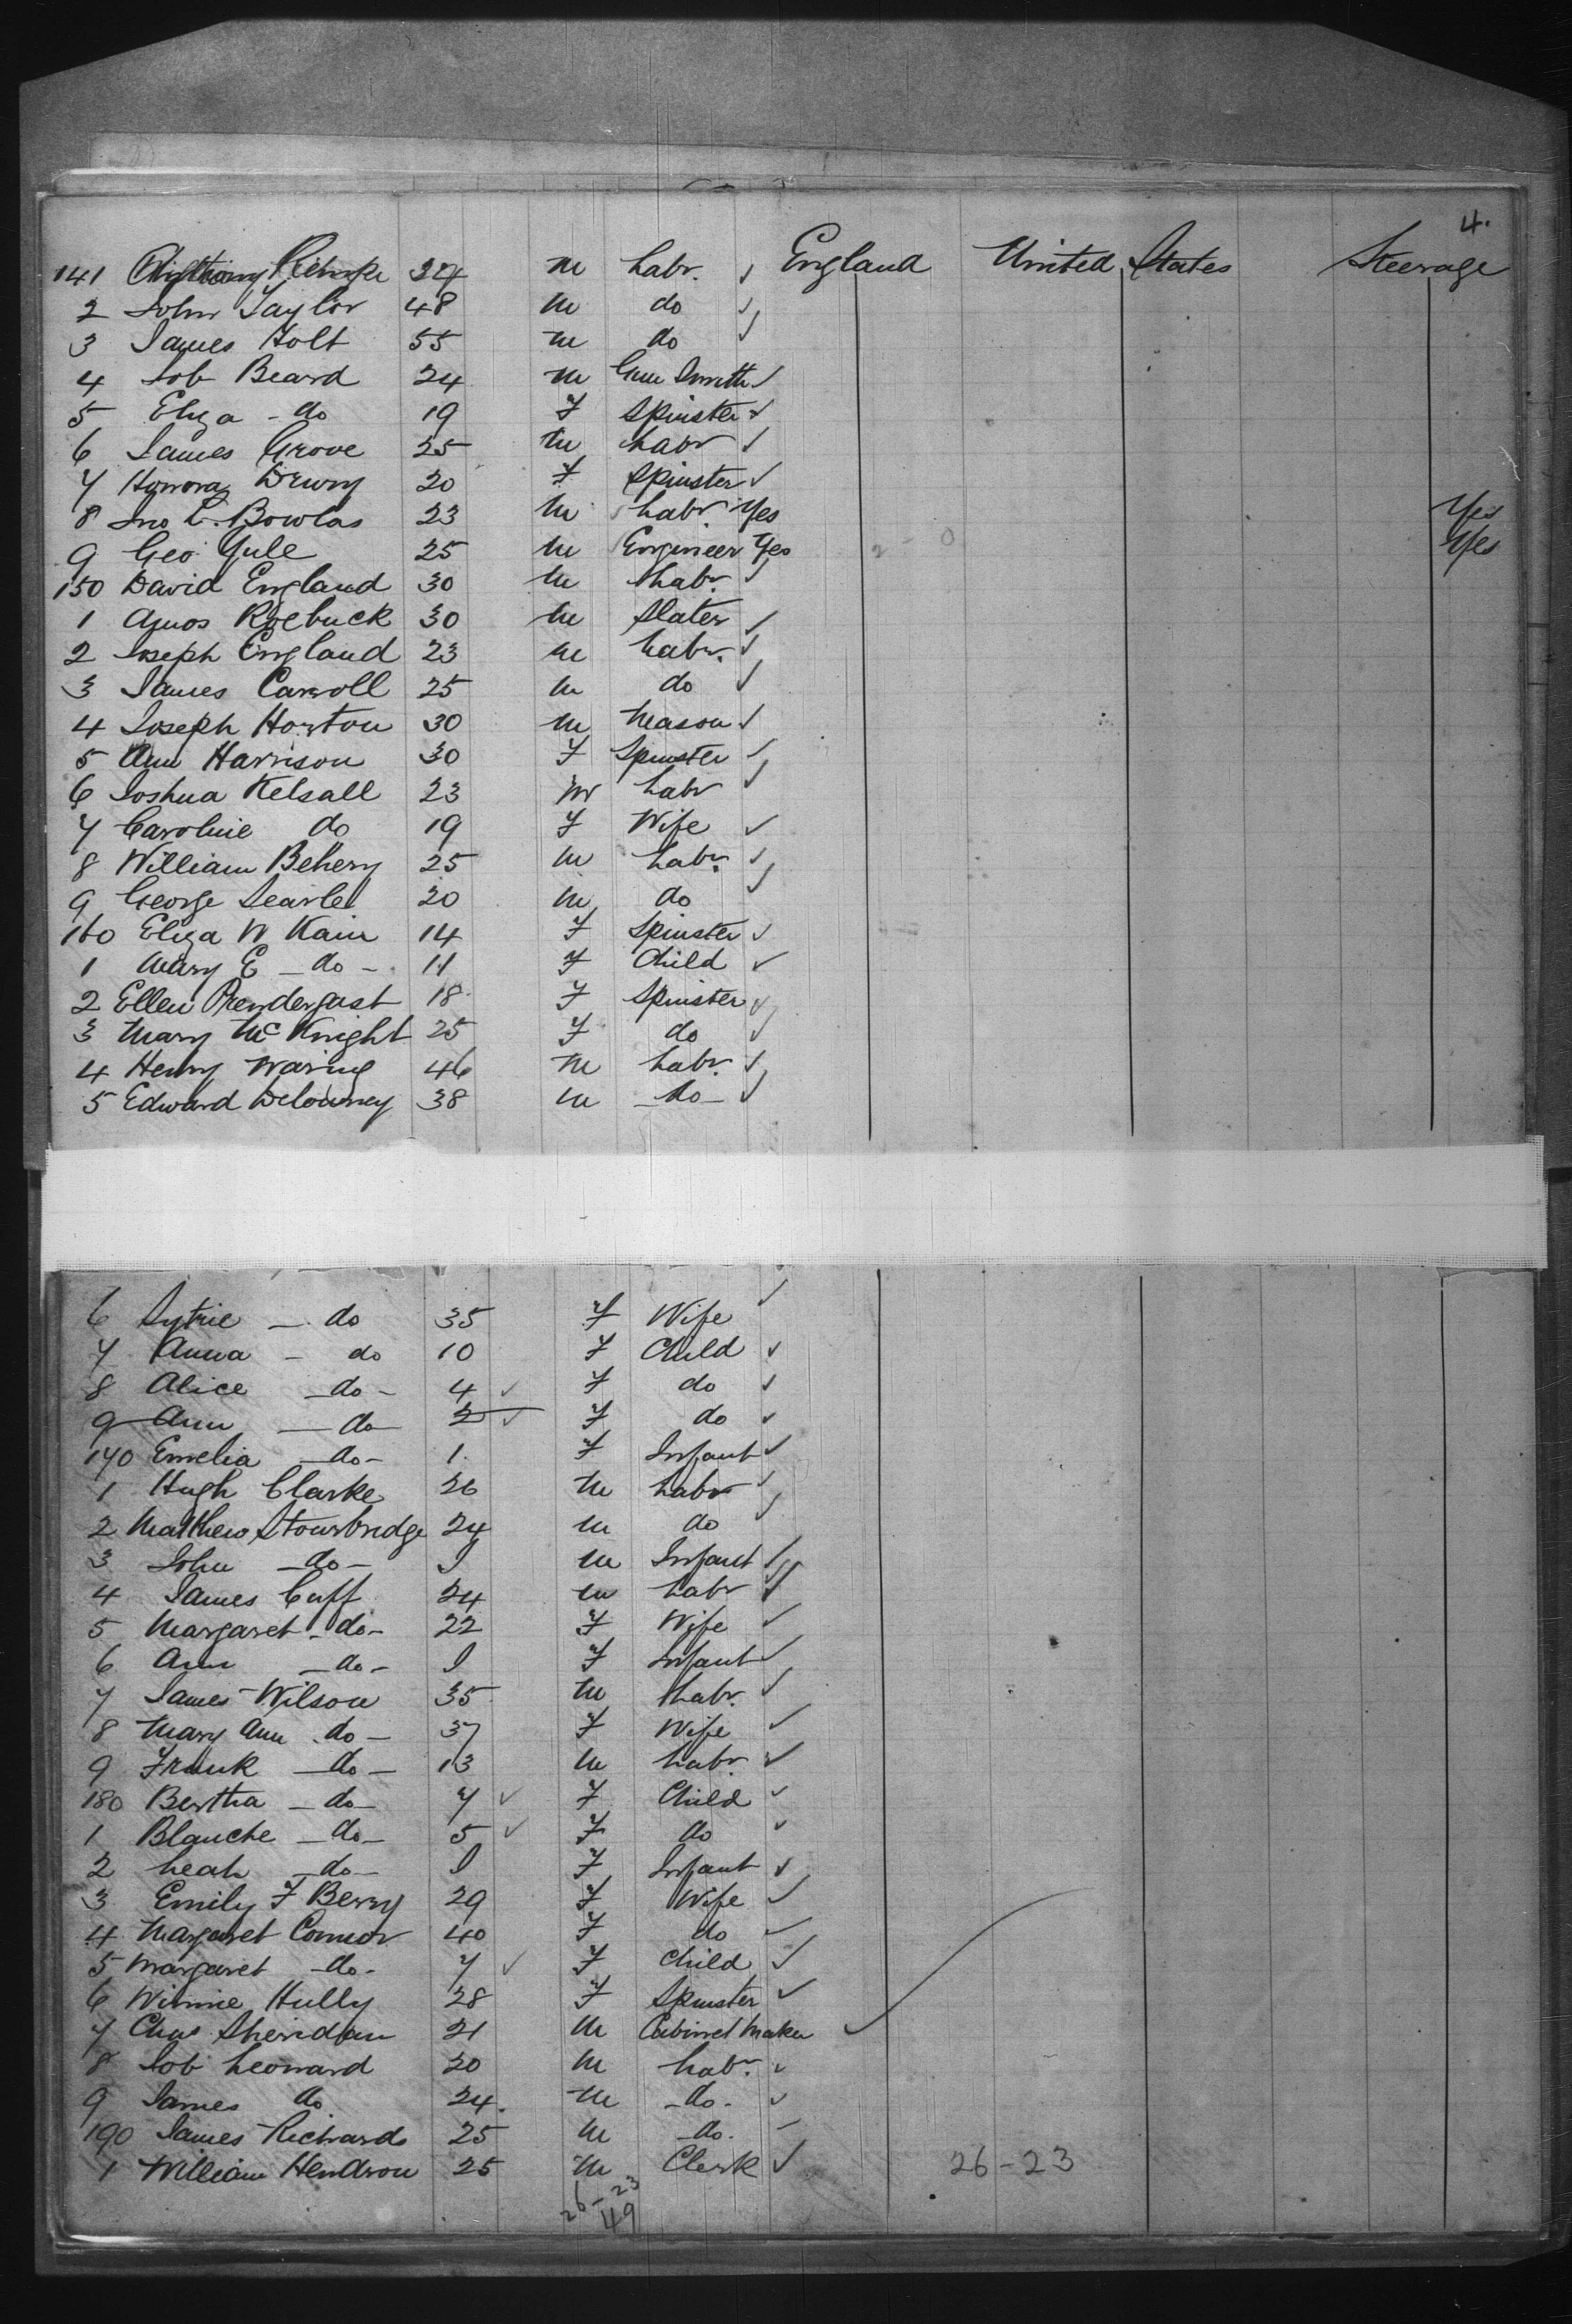 4.
141 Anthony 34 M Labr. ✓ England United States Steerage
2 John Taylor 48 M do ✓
3 James Holt 55 M do ✓
4 Job Beard 24 M Gun Smith ✓
5 Eliza - do 19 F Spinster ✓
6 James Grove 25 M Labr ✓
7 Honora Drury 20 F Spinster ✓
8 Jno L. Bowlas 23 M Labr. Yes Yes
9 Geo Yule 25 M Engineer Yes Yes
150 David England 30 M Labr. ✓
1 Amos Roebuck 30 M Slater ✓
2 Joseph England 23 M Labr. ✓
3 James Carroll 25 M do ✓
4 Joseph Horton 30 M Mason ✓
5 Ann Harrison 30 F Spinster ✓
6 Joshua Kelsall 23 M Labr ✓
7 Caroline do 19 F Wife ✓
8 William Behery 25 M Labr. ✓
9 George Searle 20 M do ✓
160 Eliza W Kain 14 F Spinster ✓
1 Mary E - do - 11 F Child ✓
2 Ellen Prendergast 18 F Spinster ✓
3 Mary McKnight 25 F do ✓
4 Henry Waring 46 M Labr. ✓
5 Edward Delouney 38 M - do - ✓
6 - do 35 F Wife ✓
7 Anna - do 10 F Child ✓
8 Alice - do - 4 ✓ F do ✓
9 Ann - do 2 ✓ F do ✓
170 Emelia - do - 1. F Infant ✓
1 Hugh Clarke 26 M Labr ✓
2 Matthew Stourbridge 24 M do ✓
3 John - do - I M Infant ✓
4 James Cuff 24 M Labr ✓
5 Margaret - do - 22 F Wife ✓
6 Ann - do - I F Infant ✓
7 James Wilson 35 M Labr. ✓
8 Mary Ann - do - 37 F Wife ✓
9 Frank - do - 13 M Labr. ✓
180 Bertha - do - 7 ✓ F Child ✓
1 Blanche - do - 5 ✓ F do ✓
2 Leah - do - I F Infant ✓
3 Emily F Berry 29 F Wife ✓
4 Margaret Connor 40 F do ✓
5 Margaret - do - 7 ✓ F Child ✓
6 Winnie Hully 28 F Spinster ✓
7 Chas Sheridan 21 M Cabinet Maker ✓
8 Job Leonard 20 M Labr. ✓
9 James do 24. M - do - ✓
190 James Richards 25 M - do. ✓
1 William Hendron 25 M Clerk ✓ 26-23
26-23
49